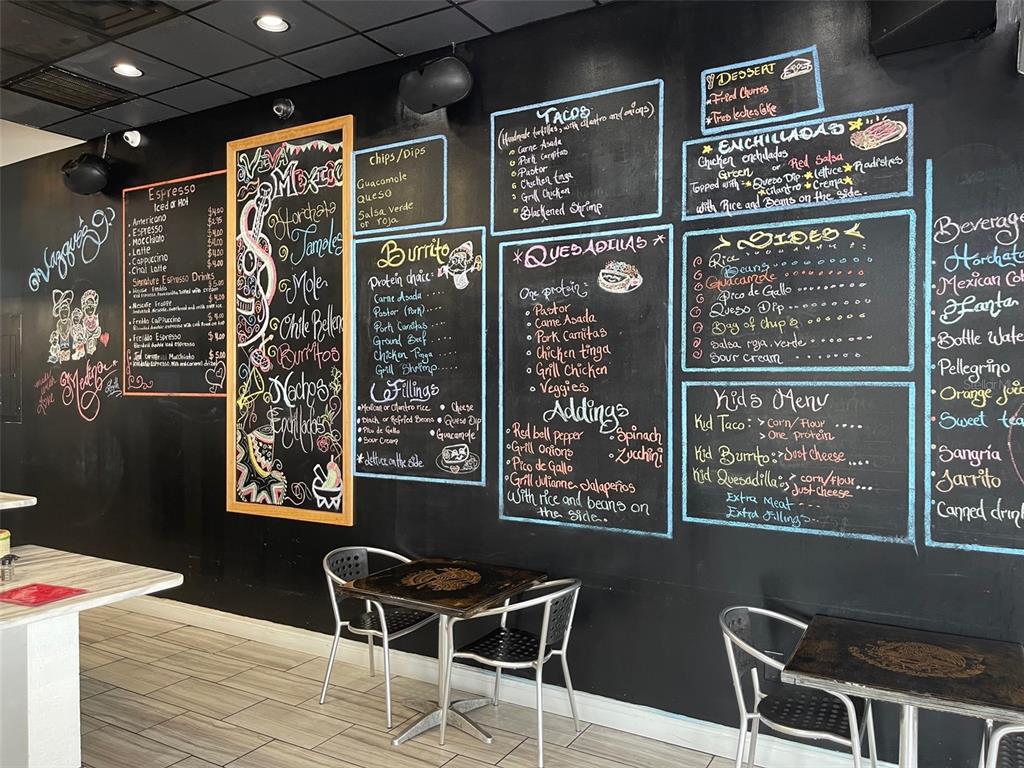 Vazquez
made with Love
Espresso
Iced or Hot
• Americano $4.00
• Espresso $2.75
• Mocchiato $4.00
• Latte $4.00
• Cappuccino $4.00
• Chai Latte $4.00
Signature Espresso Drinks
$5.00
• Nesside Frappe $4.00
• Freddo Cappuccino $4.00
• Freddo Espresso $4.00
Blended double iced espresso
• Iced Caramel Macchiato $5.00
Viva
Mexico
Horchata
Tamales
Mole
Chile Relleno
Burritos
Nachos
Enchiladas
Chips/Dips
Guacamole
Queso
Salsa verde
or roja
Burrito
Protein choice
Carne Asada
Pastor (Pork)
Pork Carnitas
Ground Beef
Chicken Tinga
Grill Shrimp
Fillings
• Mexican or Cilantro Rice
• Black or Refried Beans
• Pico de Gallo
• Sour Cream
* Lettuce on the side
• Cheese
• Queso Dip
• Guacamole
Tacos
(Handmade tortillas, with cilantro and onions)
Carne Asada
Pork Carnitas
Pastor
Chicken Tinga
Grill Chicken
Blackened Shrimp
* Quesadillas *
One protein:
• Pastor
• Carne Asada
• Pork Carnitas
• Chicken tinga
• Grill Chicken
• Veggies
Addings
• Red bell pepper
• Grill Onions
• Pico de Gallo
• Grill Julianne-Jalapeños
• Spinach
• Zucchini
With rice and beans on
the side..
Dessert
* Fried Churros
* Tres leches Cake
Enchilladas
Chicken enchilados
Green or Red Salsa
Topped with: Queso Dip Lettuce Radishes
cilantro Crema
with Rice and Beans on the side.
Sides
Rice
Beans
Guacamole
Pico de Gallo
Queso Dip
Bag of Chips
Salsa roja verde
Sour Cream
Kids Menu
Kid Taco: > Corn/Flour
> One protein
Kid Burrito: > Just Cheese
Kid Quesadilla: > corn/Flour
> Just Cheese
Extra Meat
Extra Fillings
Beverage
Horchata
Mexican Col
Fanta
Bottle Wate
Pellegrino
Orange Juic
Sweet tea
Sangría
Jarrito
Canned drink